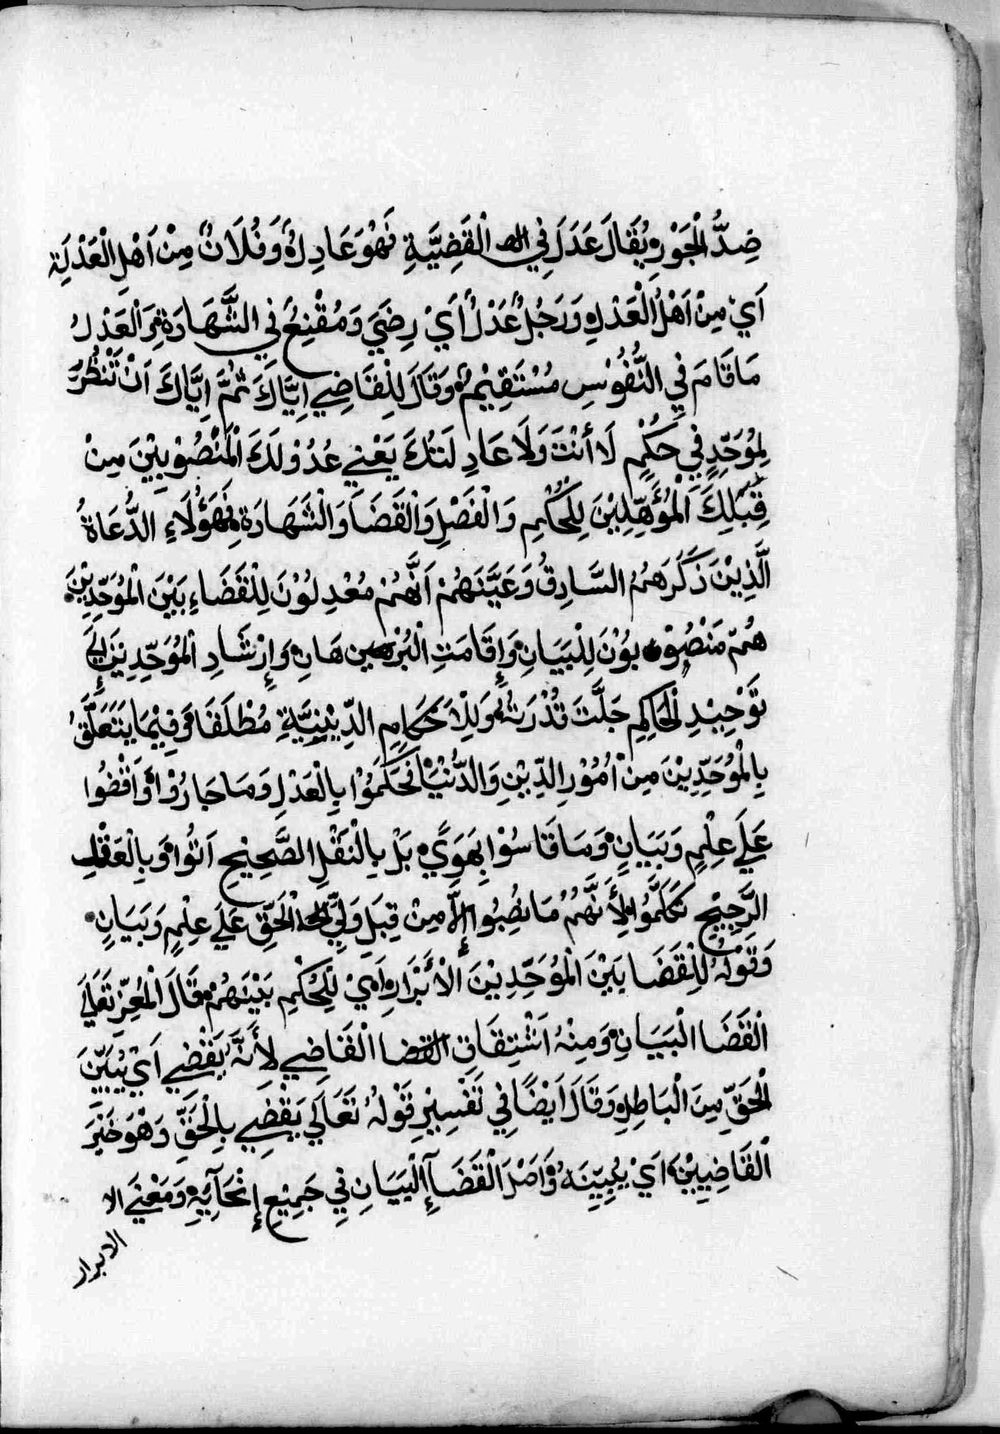 ضِدُّ الْجَوْرِ يُقَالَ عَدَلَ فِي الْقَضِيَّةِ فَهُوَ عَادِلٌ وَفُلَانٌ مِنْ اَهْلِ الْعَدْلَةِ
اَيْ مِنْ اَهْلِ الْعَدْلِ وَرَجُلٌ عَدْلٌ اَيْ رِضَيَ وَمُقْنِعٌ فِي الشَّهَادَةِ وَالْعَدْلُ
مَا قَامَ فِي النُّفُوْسِ مُسْتَقِيْمٌ وَقَالَ لِلقَاضِي اِيَّاكَ ثُمَّ اِيَّاكَ اَنْ تَنْظُرَ
لِمُوَحِّدٍ فِي حَكْمٍ لَا أَنْتَ وَلَا عَادِلَتَكَ يَعْنِي عُدُوْلَكَ الْمَنْصُوْبِيْنَ مِنْ
قِبَلِكَ الْمُؤَهِّلِيْنَ لِلْحُكْمِ وَالْفَصْلِ وَالْقَضَا وَالْشَهَادَةِ فَهَؤُلَاءِ الدُّعَاةُ
الَّذِيْنَ ذَكَرَهُمُ السَّادِقُ وَعَيَّنَهُمْ اَنَّهُمْ مُعْدِلُوْنَ لِلْقَضَاءِ بَيْنَ الْمُوَحِّدِيْنَ
هُمّ مَنْصُوْبُوْنَ لِلْبَيَانِ وَإِقَامَتِ الْبُرْهَانِ وَإِرْشَادِ الْمُوَحِّدِيْنَ إِلَيَ
تَوْحِيْدِ الْحَاكِمِ جَلَّتَ قُدْرَتُهُ وَلِلْاَحْكَامِ الدِّيْنِيَّةِ مُطْلَقًا وَفِيْمَا يَتَعَلَّقُ
بِالْمُوَحِّدِيْنَ مِنْ اُمُوْرِ الدِّيْنِ وَالدُّنْيَا فَحَكَمُوْا بِالْعَدْلِ وَمَا جَارُوْا وَاَقْضُوا
عَلَيَ عِلْمٍ وَبَيَانٍ وَمَا قَاسُوْا بِهَوَيً بَلْ بِالْنَقْلِ الصَّحِيْحِ اَتَوُا وَبِالْعَقْلِ
الرَّجِيْحِ تَكَلَّمُوا لِأَنَّهُمْ مَا نُصِبُوا إِلَّا مِنْ قِبَلِ وَلِيِّ الْحَقِّ عَلَيَ عِلْمٍ وَبَيَانٍ
وَقَوْلُهُ لِلْقَضَا بَيْنَ الْمُوَحِّدِيْنَ الْأَبْرَارِ اَيْ لِلْحُكْمِ بَيْنَهُمْ قَالَ الْمُعِزّ تَعَلَيَ
الْقَضَا الْبَيَانِ وَمِنْهُ اَشْتِقَاقِ الْقَاضِي لِأَنَّهُ يَقْضِي اَيْ يُبَيِّنَ
الْحَقِّ مِنَ الْبَاطِلِ وَقَالَ اَيْضًا فِي تَفْسِيْرِ قَوْلُهُ تَعَالَي يَقْضِي بِالْحَقِّ وَهْوَ خَيْرَ
الْقَاضِيِيْنَ اَيْ يُبِيِّنَهُ وَاَصْلَ الْقَضَآ الْبَيَانِ فِي جَمِيْعِ إِنْحَآيِهِ وَمَعْنَيَ الا
الابرار